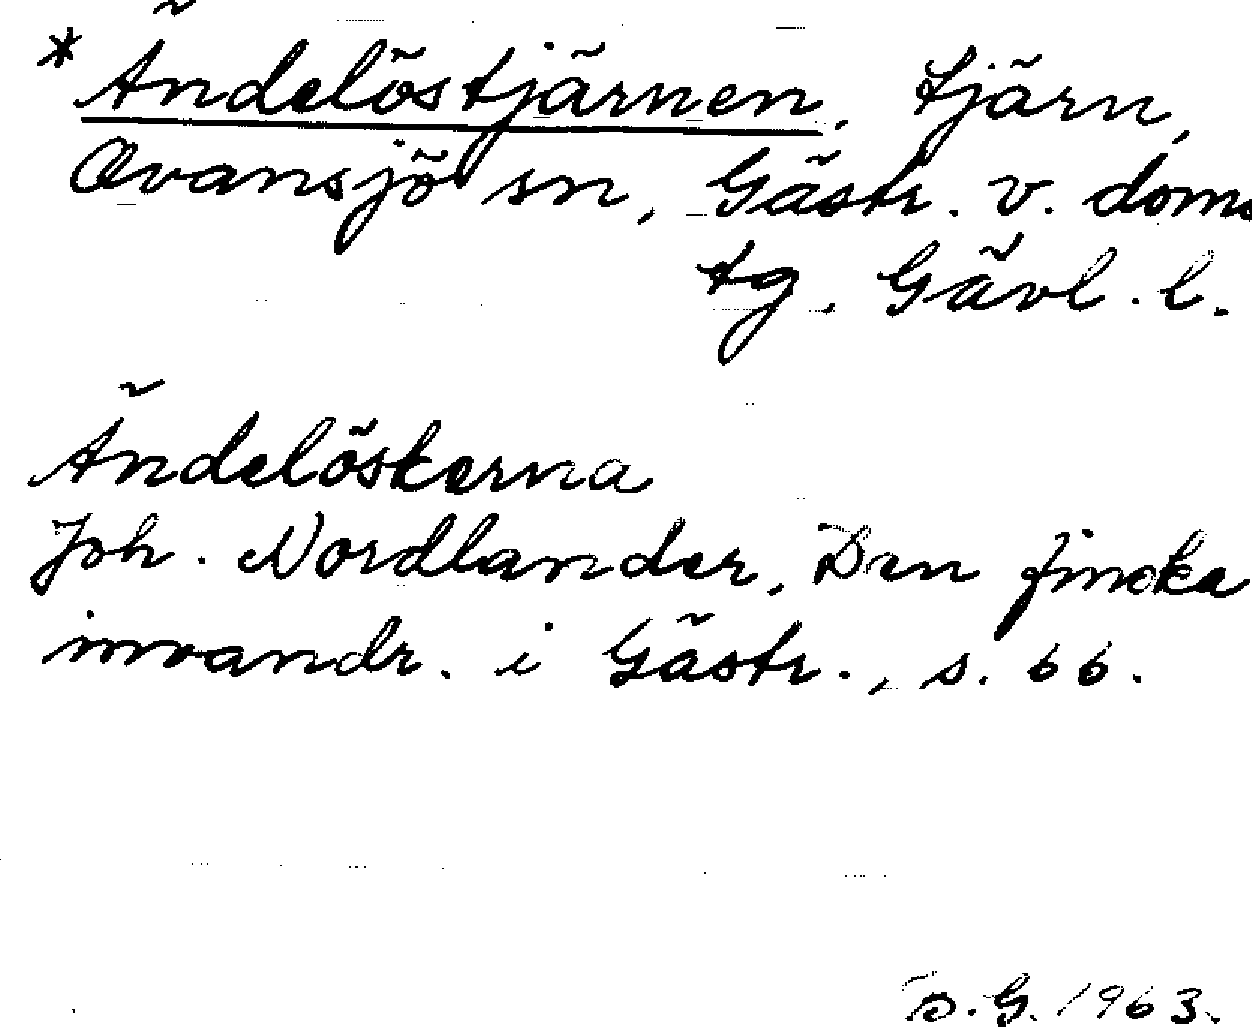 * Ändelöstjärnen, tjärn,
Ovansjö sn, Gästr. v. doms
tg, Gävl. l.
Ändelöskerna
Joh. Nordlander, Den finska
invandr. i Gästr., s. 66.
G. 1963.